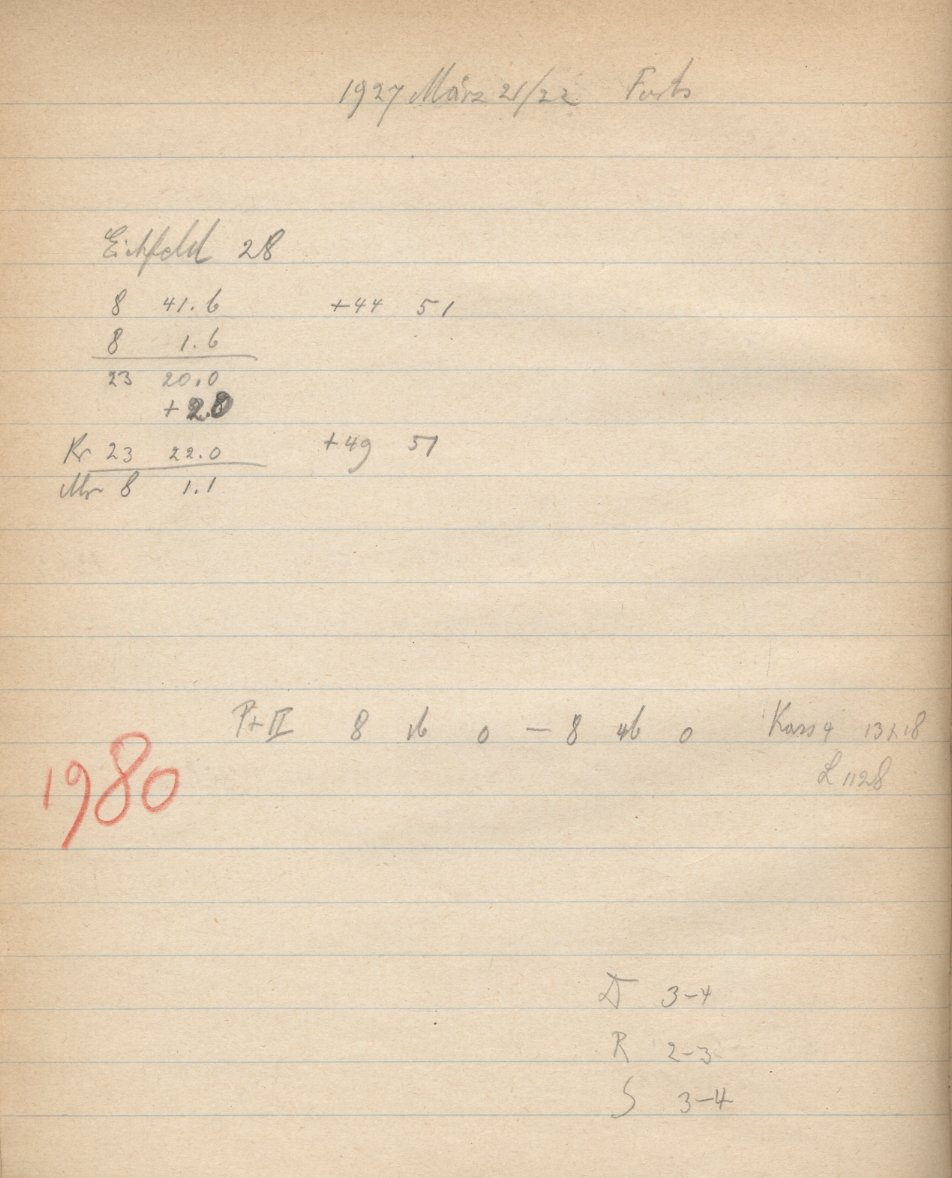 1927 März 21/22 Forts
Eichfeld 28
8 41.6 +44 51
8 1.6
23 20.0
+2.0
Kr 23 22.0 +49 51
Mr 8 1.1
Pt II 8 16 0 — 8 46 0 Kass 9 13x18
L 1128
1980
D 3-4
R 2-3
S 3-4